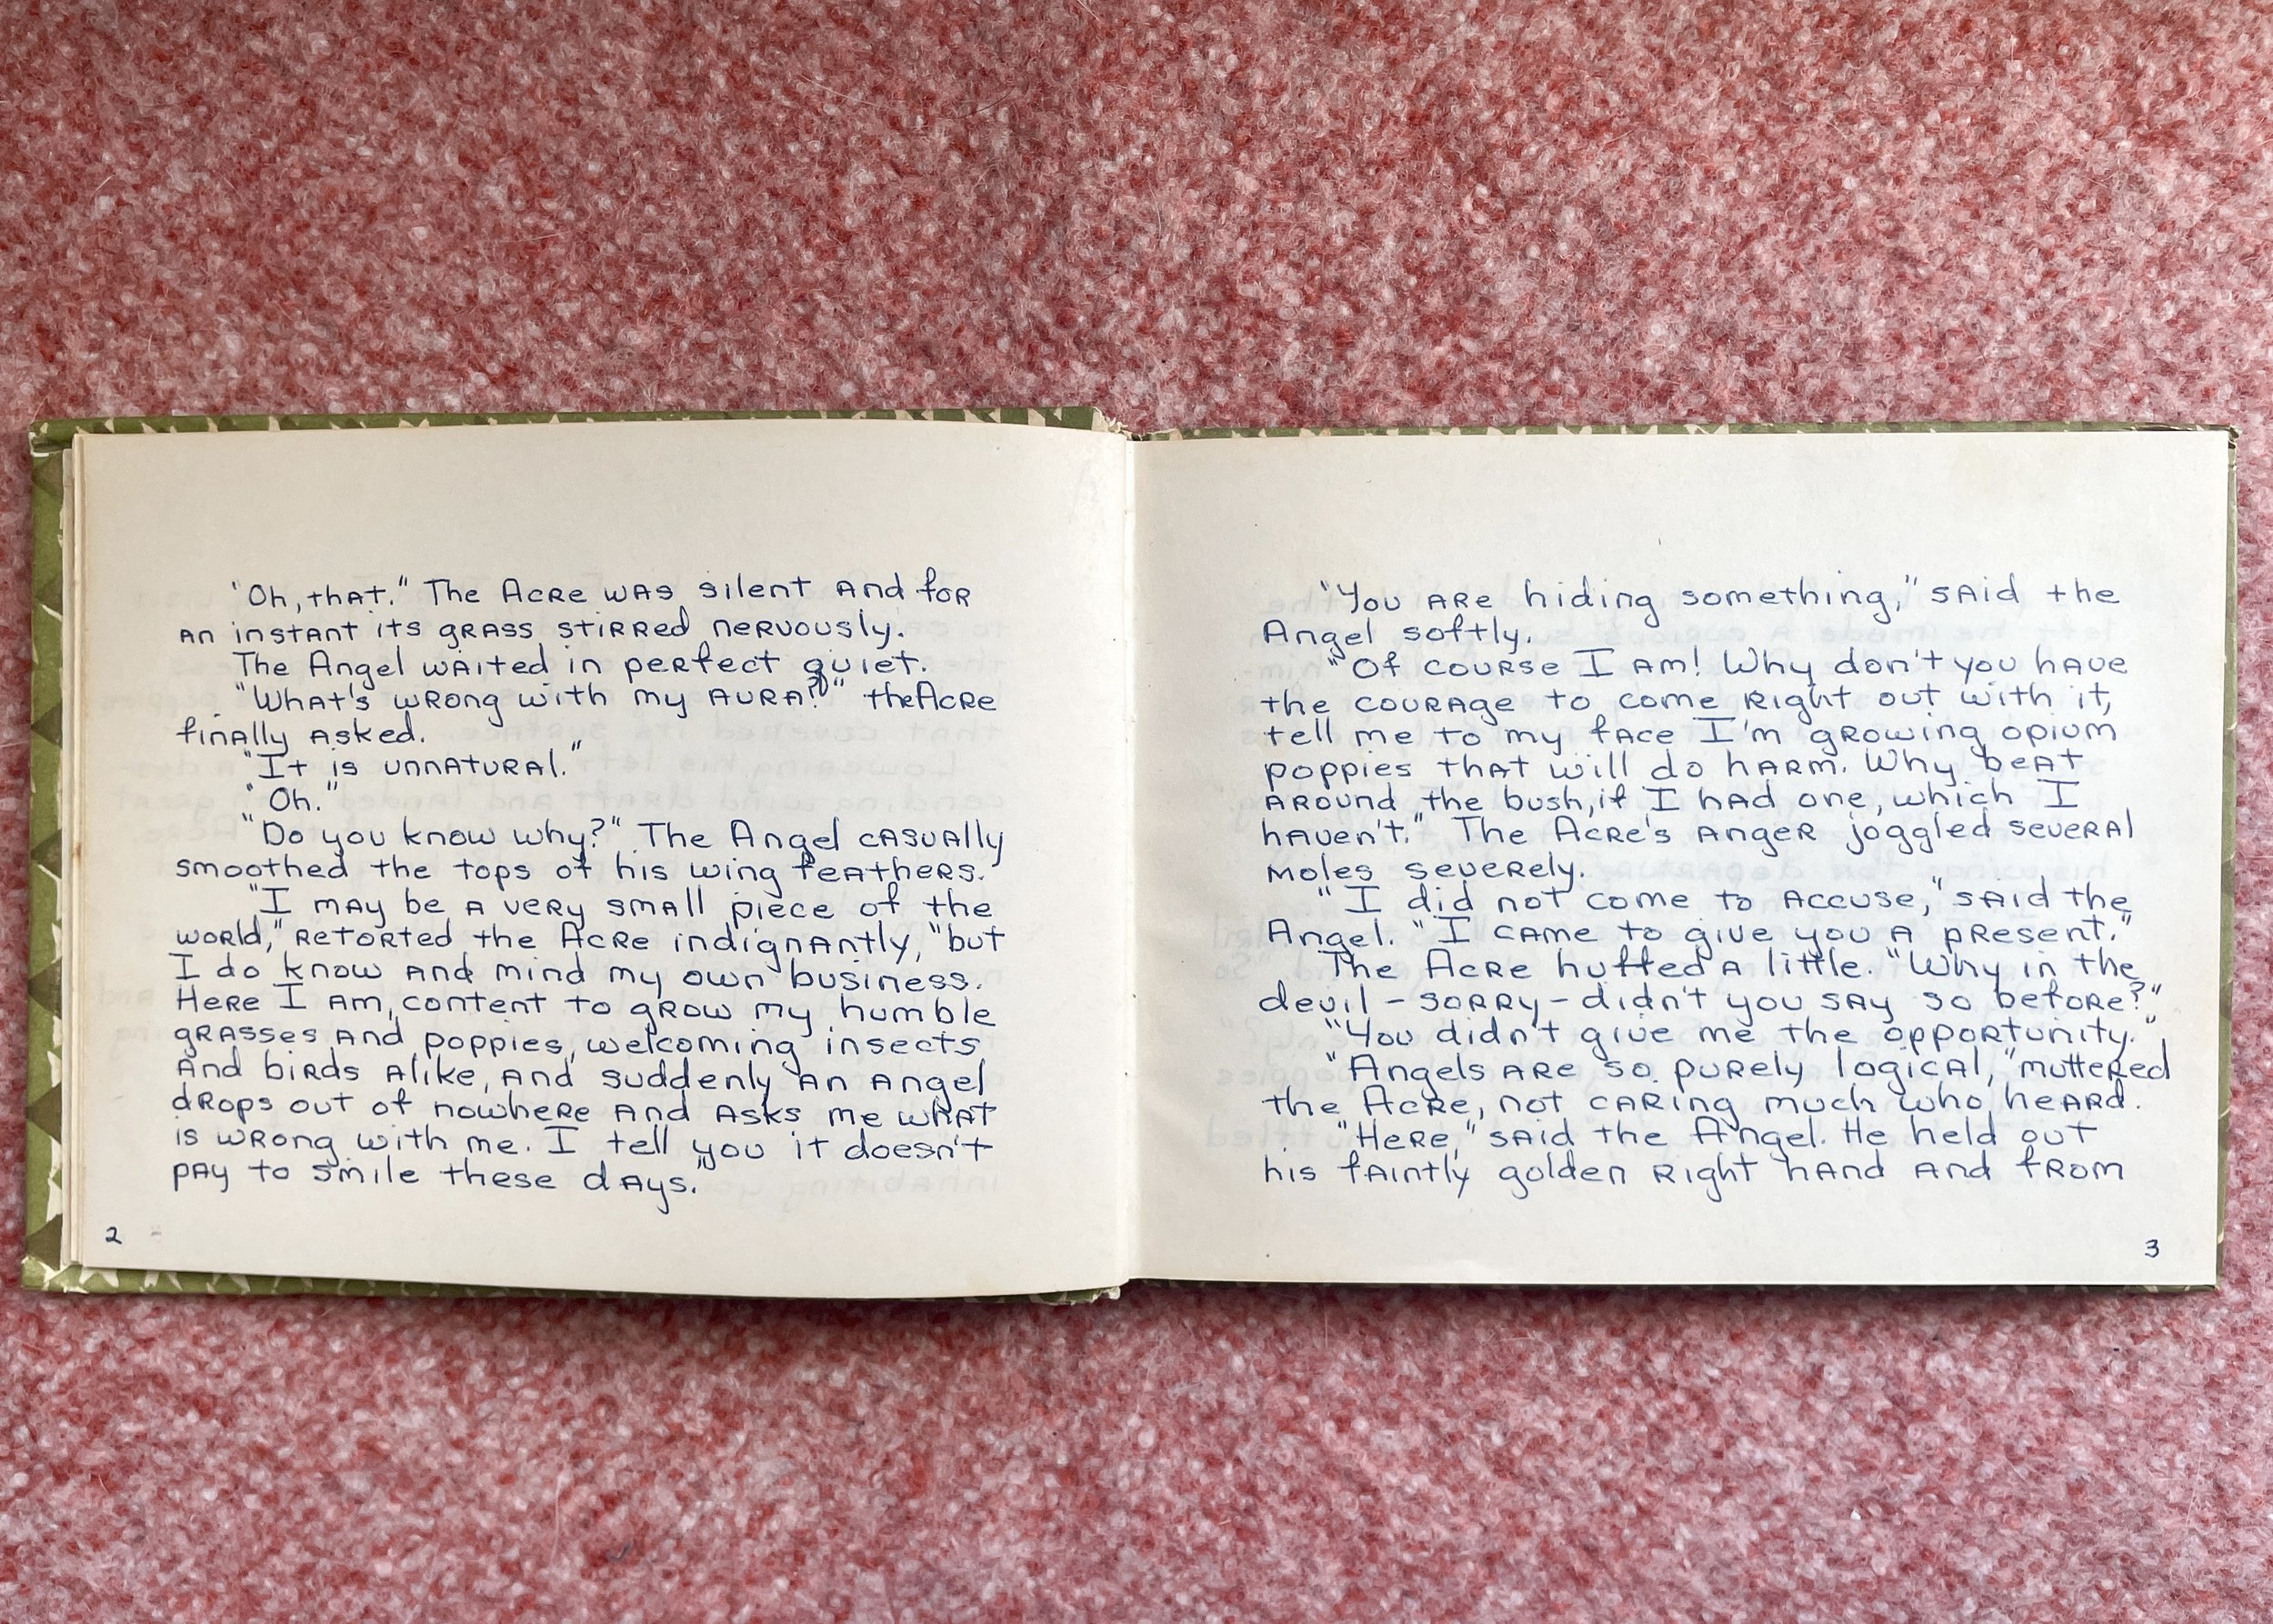 "Oh, that." The Acre was silent and for
an instant its grass stirred nervously.
The Angel waited in perfect quiet.
"What's wrong with my aura?" the Acre
finally asked.
"It is unnatural."
"Oh."
"Do you know why?" The Angel casually
smoothed the tops of his wing feathers.
"I may be a very small piece of the
world," retorted the Acre indignantly, "but
I do know and mind my own business.
Here I am, content to grow my humble
grasses and poppies, welcoming insects
and birds alike, and suddenly an Angel
drops out of nowhere and asks me what
is wrong with me. I tell you it doesn't
pay to smile these days."
2
"You are hiding something," said the
Angel softly.
"Of course I am! Why don't you have
the courage to come right out with it,
tell me to my face I'm growing opium
poppies that will do harm. Why beat
around the bush, if I had one, which I
haven't." The Acre's anger joggled several
moles severely.
"I did not come to accuse," said the
Angel. "I came to give you a present."
The Acre huffed a little. "Why in the
devil - sorry - didn't you say so before?"
"You didn't give me the opportunity."
"Angels are so purely logical," muttered
the Acre, not caring much who heard.
"Here," said the Angel. He held out
his faintly golden right hand and from
3